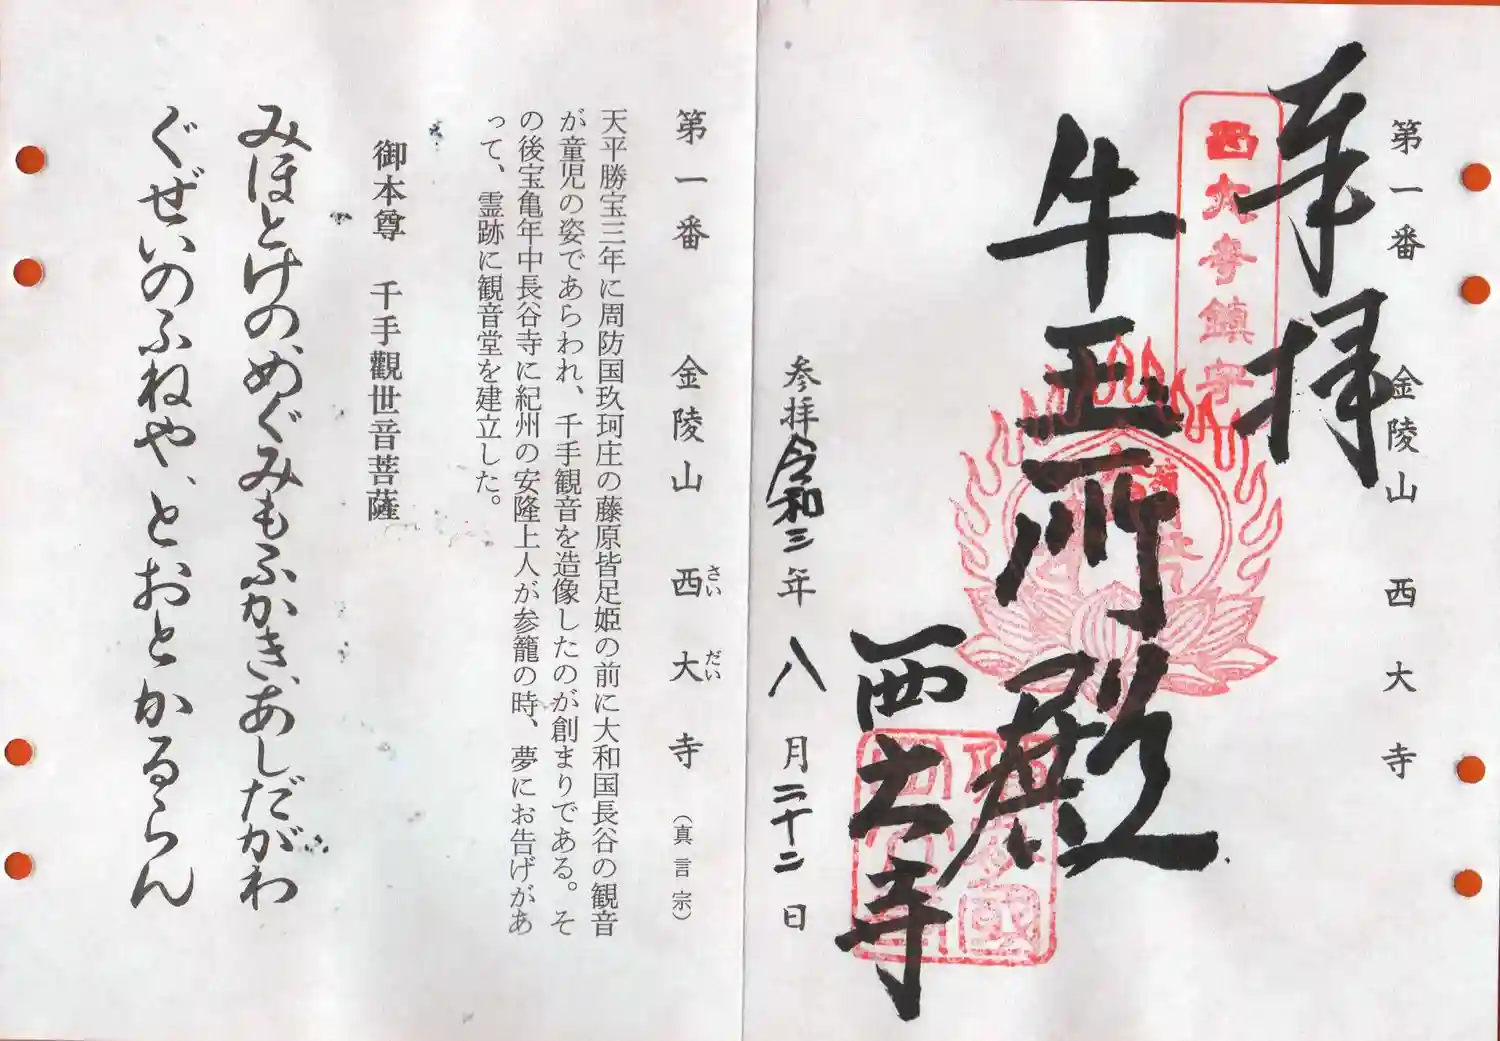 第一番 金陵山 西大寺
奉拝
西大寺鎮守
牛玉所殿
西大寺
参拝 令和三年 八月二十二日
第一番 金陵山 西大寺 (真言宗)
さい だい
天平勝宝三年に周防国玖珂庄の藤原皆足姫の前に大和国長谷の観音
が童児の姿であらわれ、千手観音を造像したのが創まりである。そ
の後宝亀年中長谷寺に紀州の安隆上人が参籠の時、夢にお告げがあ
って、霊跡に観音堂を建立した。
御本尊 千手觀世音菩薩
みほとけの、めぐみもふかき、あしだがわ
ぐぜいのふねや、とおとかるらん